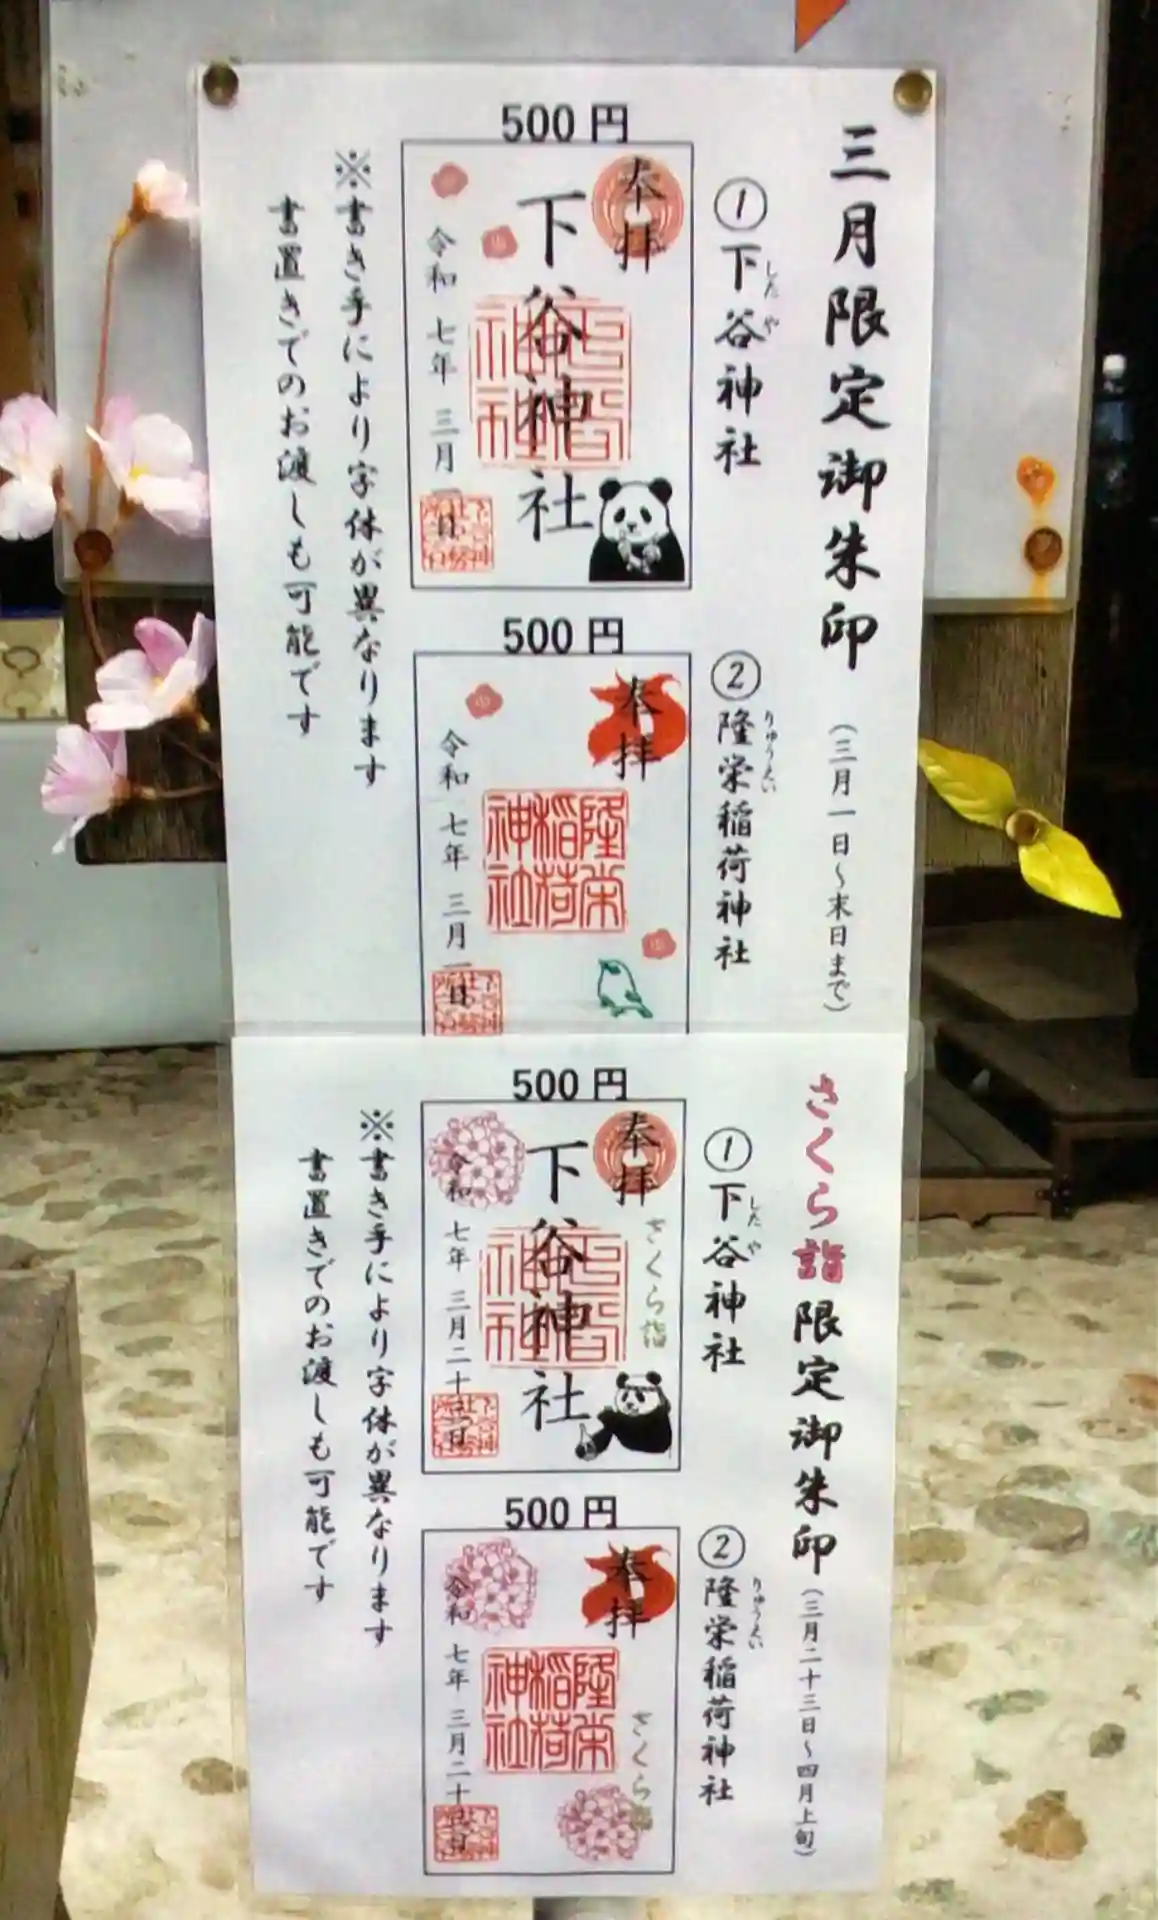 三月限定御朱印(三月一日~末日まで)
①下谷神社
したや
500円
奉拝
下谷神社
令和 七年 三月一日
②隆栄稲荷神社
りゅうえい
500円
奉拝
隆栄稲荷神社
令和 七年 三月一日
※書き手により字体が異なります
書置きでのお渡しも可能です
さくら詣限定御朱印(三月二十三日~四月上旬)
①下谷神社
したや
500円
奉拝
さくら詣
下谷神社
令和 七年 三月二十
②隆栄稲荷神社
りゅうえい
500円
奉拝
さくら詣
隆栄稲荷神社
令和 七年 三月二十
※書き手により字体が異なります
書置きでのお渡しも可能です